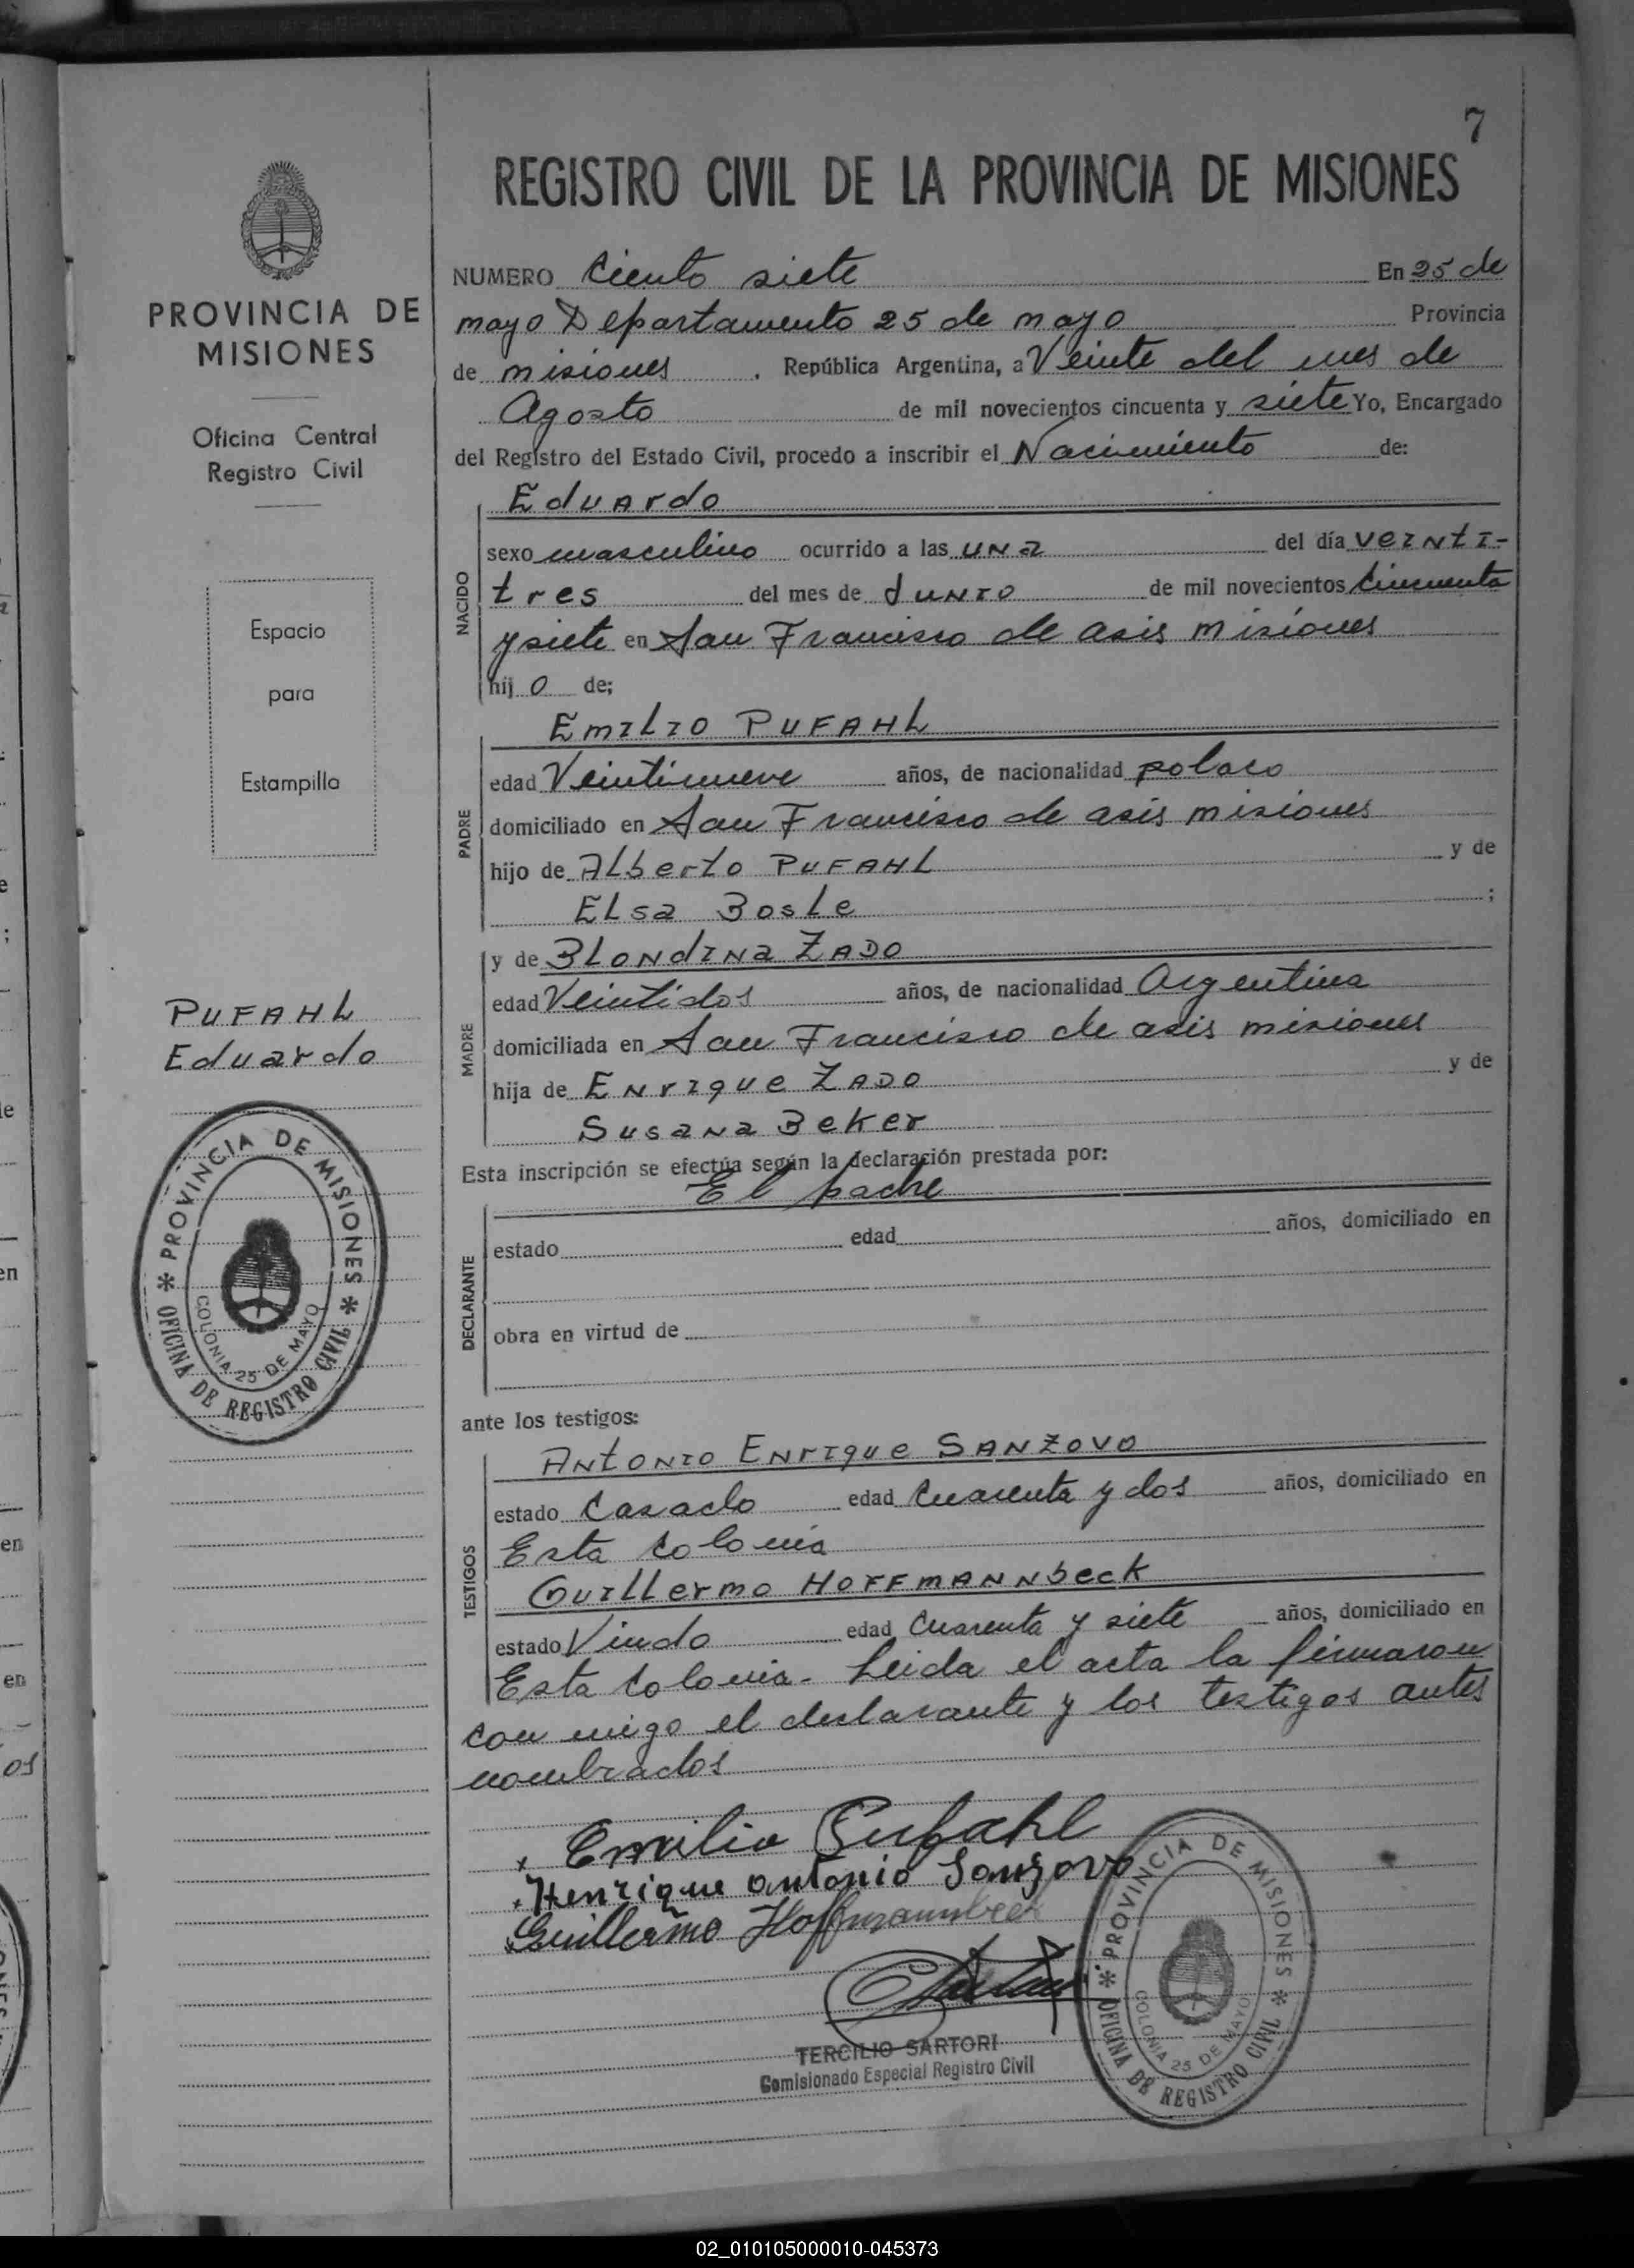 7
REGISTRO CIVIL DE LA PROVINCIA DE MISIONES
PROVINCIA DE
MISIONES
Oficina Central
Registro Civil
Espacio
para
Estampilla
PUFAHL
Eduardo
PROVINCIA DE MISIONES
OFICINA DE REGISTRO CIVIL
COLONIA 25 DE MAYO
NUMERO Ciento siete En 25 de
mayo Departamento 25 de mayo Provincia
de misiones, República Argentina, a Veinte del mes de
Agosto de mil novecientos cincuenta y siete Yo, Encargado
del Registro del Estado Civil, procedo a inscribir el Nacimiento de:
NACIDO
Eduardo
sexo masculino ocurrido a las una del día veinti-
tres del mes de Junio de mil novecientos Cincuenta
y siete en San Francisco de asis misiones
hij o de;
PADRE
Emilio PUFAHL
edad Veintinueve años, de nacionalidad polaco
domiciliado en San Francisco de asis misiones
hijo de Alberto PUFAHL y de
Elsa Bosle ;
MADRE
y de Blondina ZADO
edad Veintidos años, de nacionalidad Argentina
domiciliada en San Francisco de asis misiones
hija de Enrique ZADO y de
Susana Beker
Esta inscripción se efectúa según la declaración prestada por:
El padre
DECLARANTE
estado edad años, domiciliado en
obra en virtud de
ante los testigos:
TESTIGOS
Antonio Enrique SANZOVO
estado Casado edad Cuarenta y dos años, domiciliado en
Esta Colonia
Guillermo HOFFMANNbeck
estado Viudo edad Cuarenta y siete años, domiciliado en
Esta Colonia. Leida el acta la firmaron
con migo el declarante y los testigos antes
nombrados
Emilio Pufahl
Henrique Antonio Sanzovo
Guillermo Hoffmannbeck
TERCILIO SARTORI
Comisionado Especial Registro Civil
PROVINCIA DE MISIONES
OFICINA DE REGISTRO CIVIL
COLONIA 25 DE MAYO
02_010105000010-045373